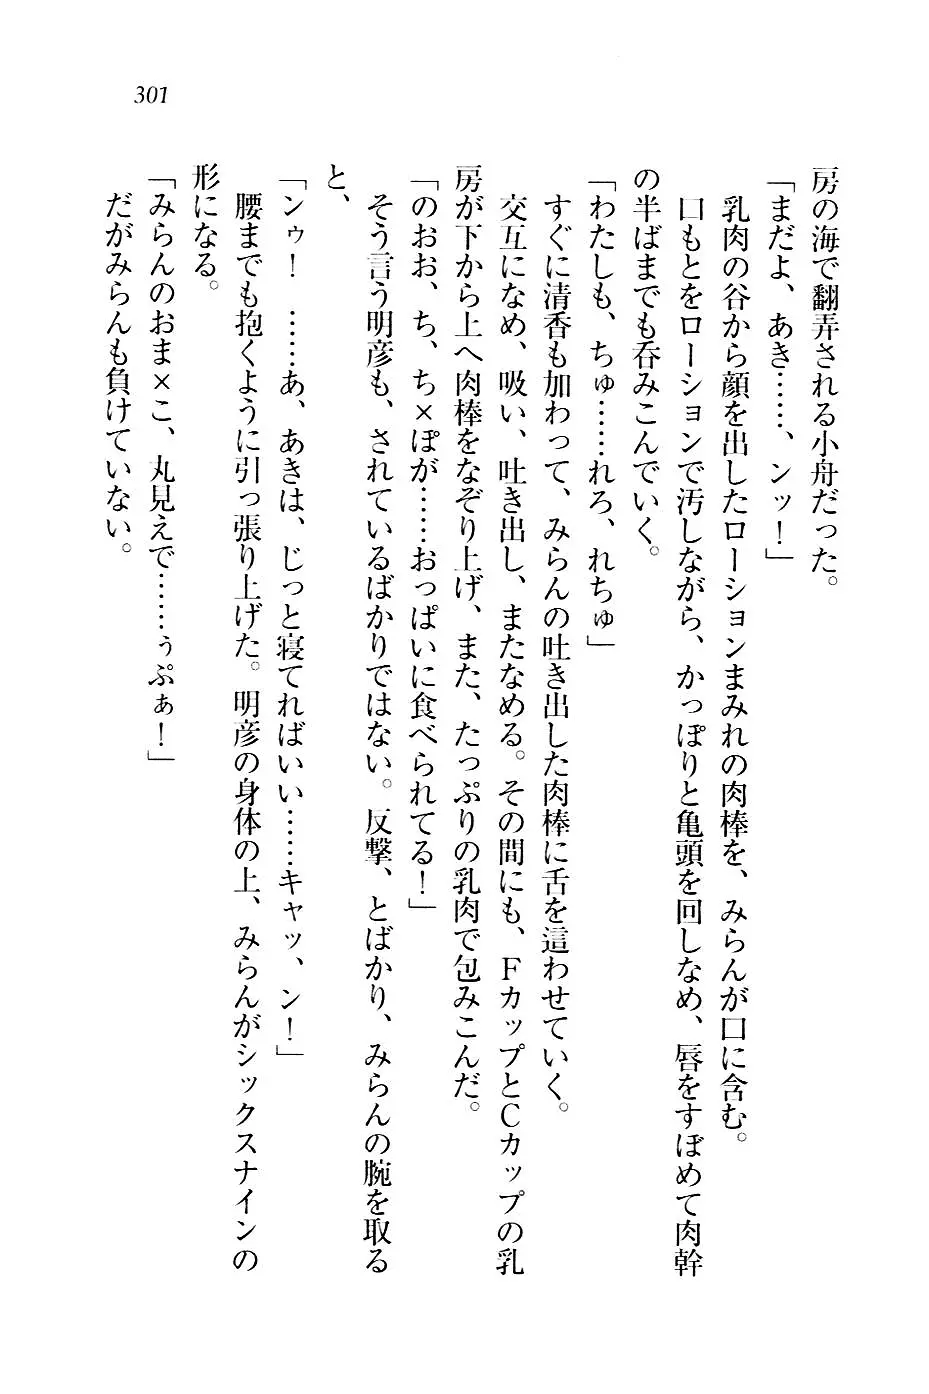 301
房の海で翻弄される小舟だった。
「まだよ、あき……、ンッ！」
乳肉の谷から顔を出したローションまみれの肉棒を、みらんが口に含む。
口もとをローションで汚しながら、かっぽりと亀頭を回しなめ、唇をすぼめて肉幹
の半ばまでも呑みこんでいく。
「わたしも、ちゅ……れろ、れちゅ」
すぐに清香も加わって、みらんの吐き出した肉棒に舌を這わせていく。
交互になめ、吸い、吐き出し、またなめる。その間にも、FカップとCカップの乳
房が下から上へ肉棒をなぞり上げ、また、たっぷりの乳肉で包みこんだ。
「のおお、ち、ち×ぽが……おっぱいに食べられてる！」
そう言う明彦も、されているばかりではない。反撃、とばかり、みらんの腕を取る
と、
「ンゥ！　……あ、あきは、じっと寝てればいい……キャッ、ン！」
腰までも抱くように引っ張り上げた。明彦の身体の上、みらんがシックスナインの
形になる。
「みらんのおま×こ、丸見えで……ぅぷぁ！」
だがみらんも負けていない。